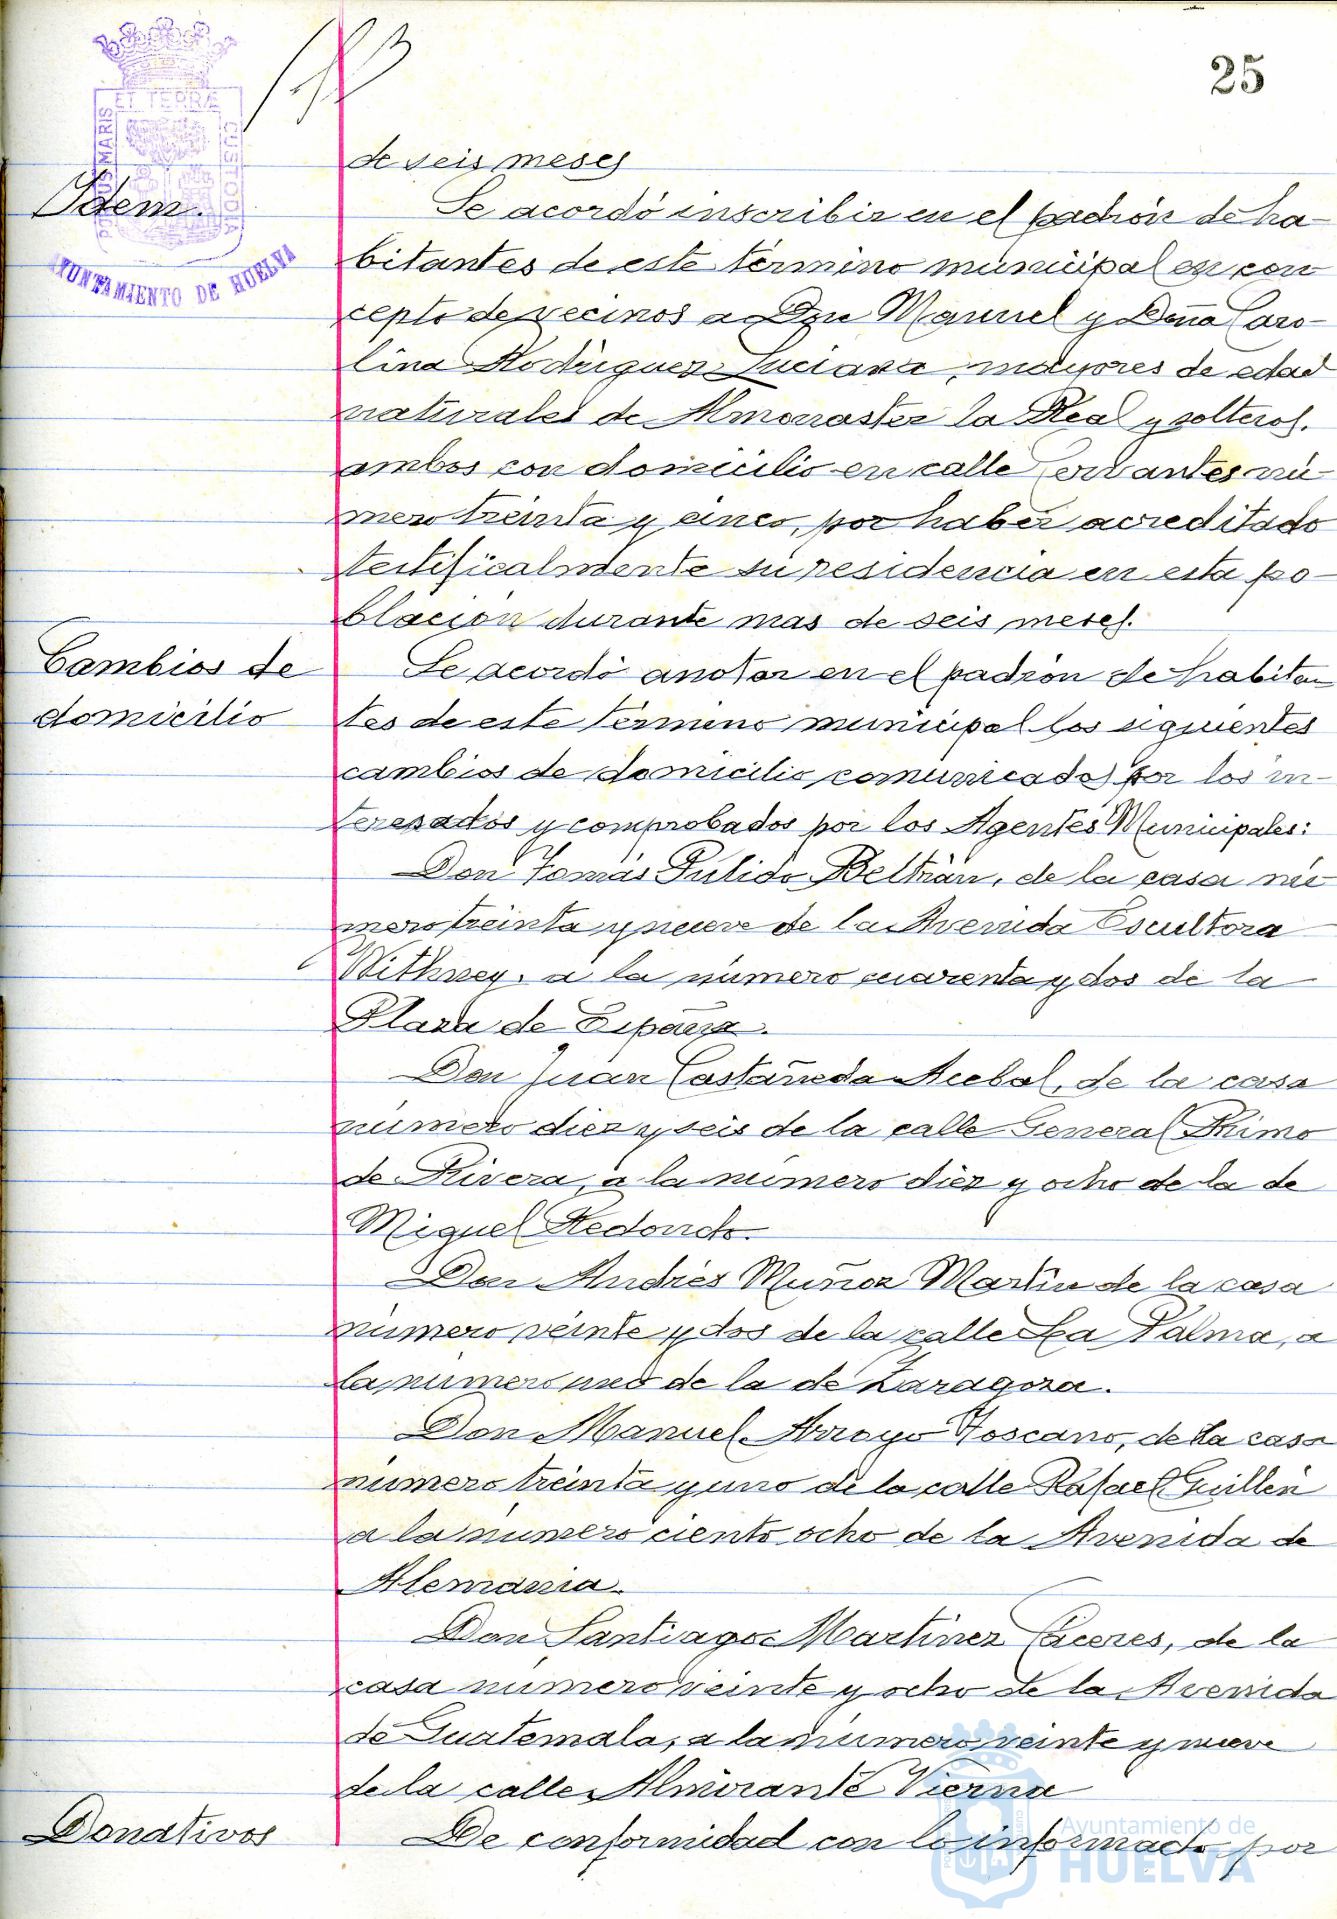 25
PORTUS MARIS ET TERRÆ CUSTODIA
AYUNTAMIENTO DE HUELVA
de seis meses
Idem.
Se acordó inscribir en el padrón de ha-
bitantes de este término municipal en con
cepto de vecinos a Don Manuel y Doña Caro-
lina Rodriguez Luciana, mayores de edad
naturales de Almonaster la Real y solteros.
ambos con domicilio en calle Cervantes nú-
mero treinta y cinco, por haber acreditado
testificalmente su residencia en esta po-
blación durante mas de seis meses.
Cambios de
domicilio
Se acordó anotar en el padrón de habitan
tes de este término municipal los siguientes
cambios de domicilio comunicados por los in-
teresados y comprobados por los Agentes Municipales:
Don Tomás Pulido Beltrán, de la casa nú
mero treinta y nueve de la Avenida Escultora
Withney, a la número cuarenta y dos de la
Plaza de España.
Don Juan Castañeda Acebal, de la casa
número diez y seis de la calle General Primo
de Rivera, a la número diez y ocho de la de
Miguel Redondo.
Don Andrés Muñoz Martín de la casa
número veinte y dos de la calle La Palma, a
la número uno de la de Zaragoza.
Don Manuel Arroyo Toscano, de la casa
número treinta y uno de la calle Rafael Guillén
a la número ciento ocho de la Avenida de
Alemania.
Don Santiago Martínez Cáceres, de la
casa número veinte y ocho de la Avenida
de Guatemala, a la número veinte y nueve
de la calle Almirante Vierna
Donativos
De conformidad con lo informado por
Ayuntamiento de
HUELVA